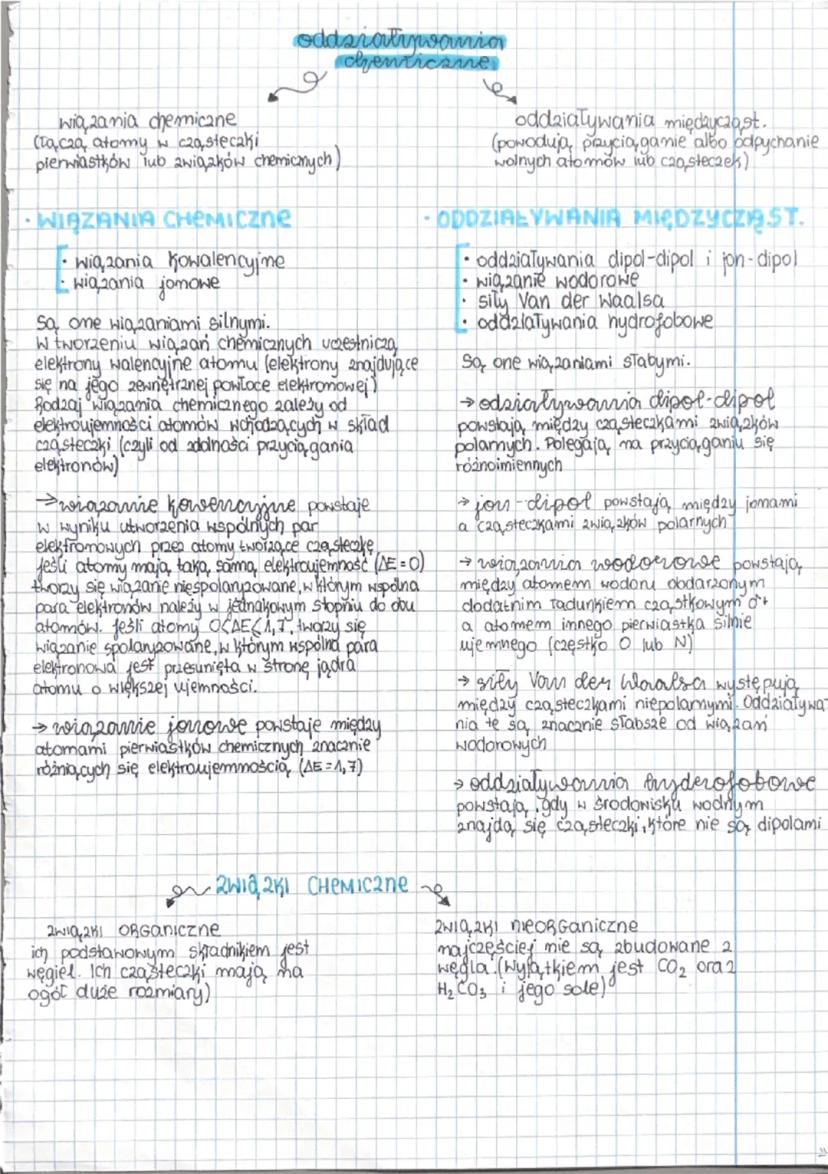 oddziaływania
chemiczne
wiązania chemiczne
(łączą atomy w cząsteczki
pierwiastków lub związków chemicznych)
oddziaływania międzycząst.
(powodują przyciąganie albo odpychanie
wolnych atomów lub cząsteczek)
• WIĄZANIA CHEMICZNE
• wiązania kowalencyjne
• wiązania jonowe
Są one wiązaniami silnymi.
W tworzeniu wiązań chemicznych uczestniczą
elektrony walencyjne atomu (elektrony znajdujące
się na jego zewnętrznej powłoce elektronowej)
Rodzaj wiązania chemicznego zależy od
elektroujemności atomów wchodzących w skład
cząsteczki (czyli od zdolności przyciągania
elektronów)
→ wiązanie kowencyjne powstaje
w wyniku utworzenia wspólnych par
elektronowych przez atomy tworzące cząsteczkę
jeśli atomy mają taką samą elektroujemność (ΔE=0)
tworzy się wiązanie niespolaryzowane, w którym wspólna
para elektronów należy w jednakowym stopniu do obu
atomów. Jeśli atomy 0<ΔE<1,7, tworzy się
wiązanie spolaryzowane, w którym wspólna para
elektronowa jest przesunięta w stronę jądra
atomu o większej ujemności.
→ wiązanie jonowe powstaje między
atomami pierwiastków chemicznych znacznie
różniących się elektroujemnością (ΔE=1,7)
• ODDZIAŁYWANIA MIĘDZYCZĄST.
• oddziaływania dipol-dipol i jon-dipol
• wiązanie wodorowe
• siły Van der Waalsa
• oddziaływania hydrofobowe
Są one wiązaniami słabymi.
→ odziaływania dipol-dipol
powstają między cząsteczkami związków
polarnych. Polegają na przyciąganiu się
różnoimiennych
→ jon-dipol powstają między jonami
a cząsteczkami związków polarnych
→ wiązania wodorowe powstają
między atomem wodoru obdarzonym
dodatnim ładunkiem cząstkowym δ+
a atomem innego pierwiastka silnie
ujemnego (często O lub N)
→ siły Van der Waalsa występują
między cząsteczkami niepolarnymi. Oddziaływa-
nia te są znacznie słabsze od wiązań
wodorowych
→ oddziaływania hyderofobowe
powstają, gdy w środowisku wodnym
znajdą się cząsteczki, które nie są dipolami
ZWIĄZKI CHEMICZNE
ZWIĄZKI ORGANICZNE
ich podstawowym składnikiem jest
węgiel. Ich cząsteczki mają na
ogół duże rozmiary)
ZWIĄZKI NIEORGANICZNE
najczęściej nie są zbudowane z
węgla. (wyjątkiem jest CO₂ oraz
H₂CO₃ i jego sole)